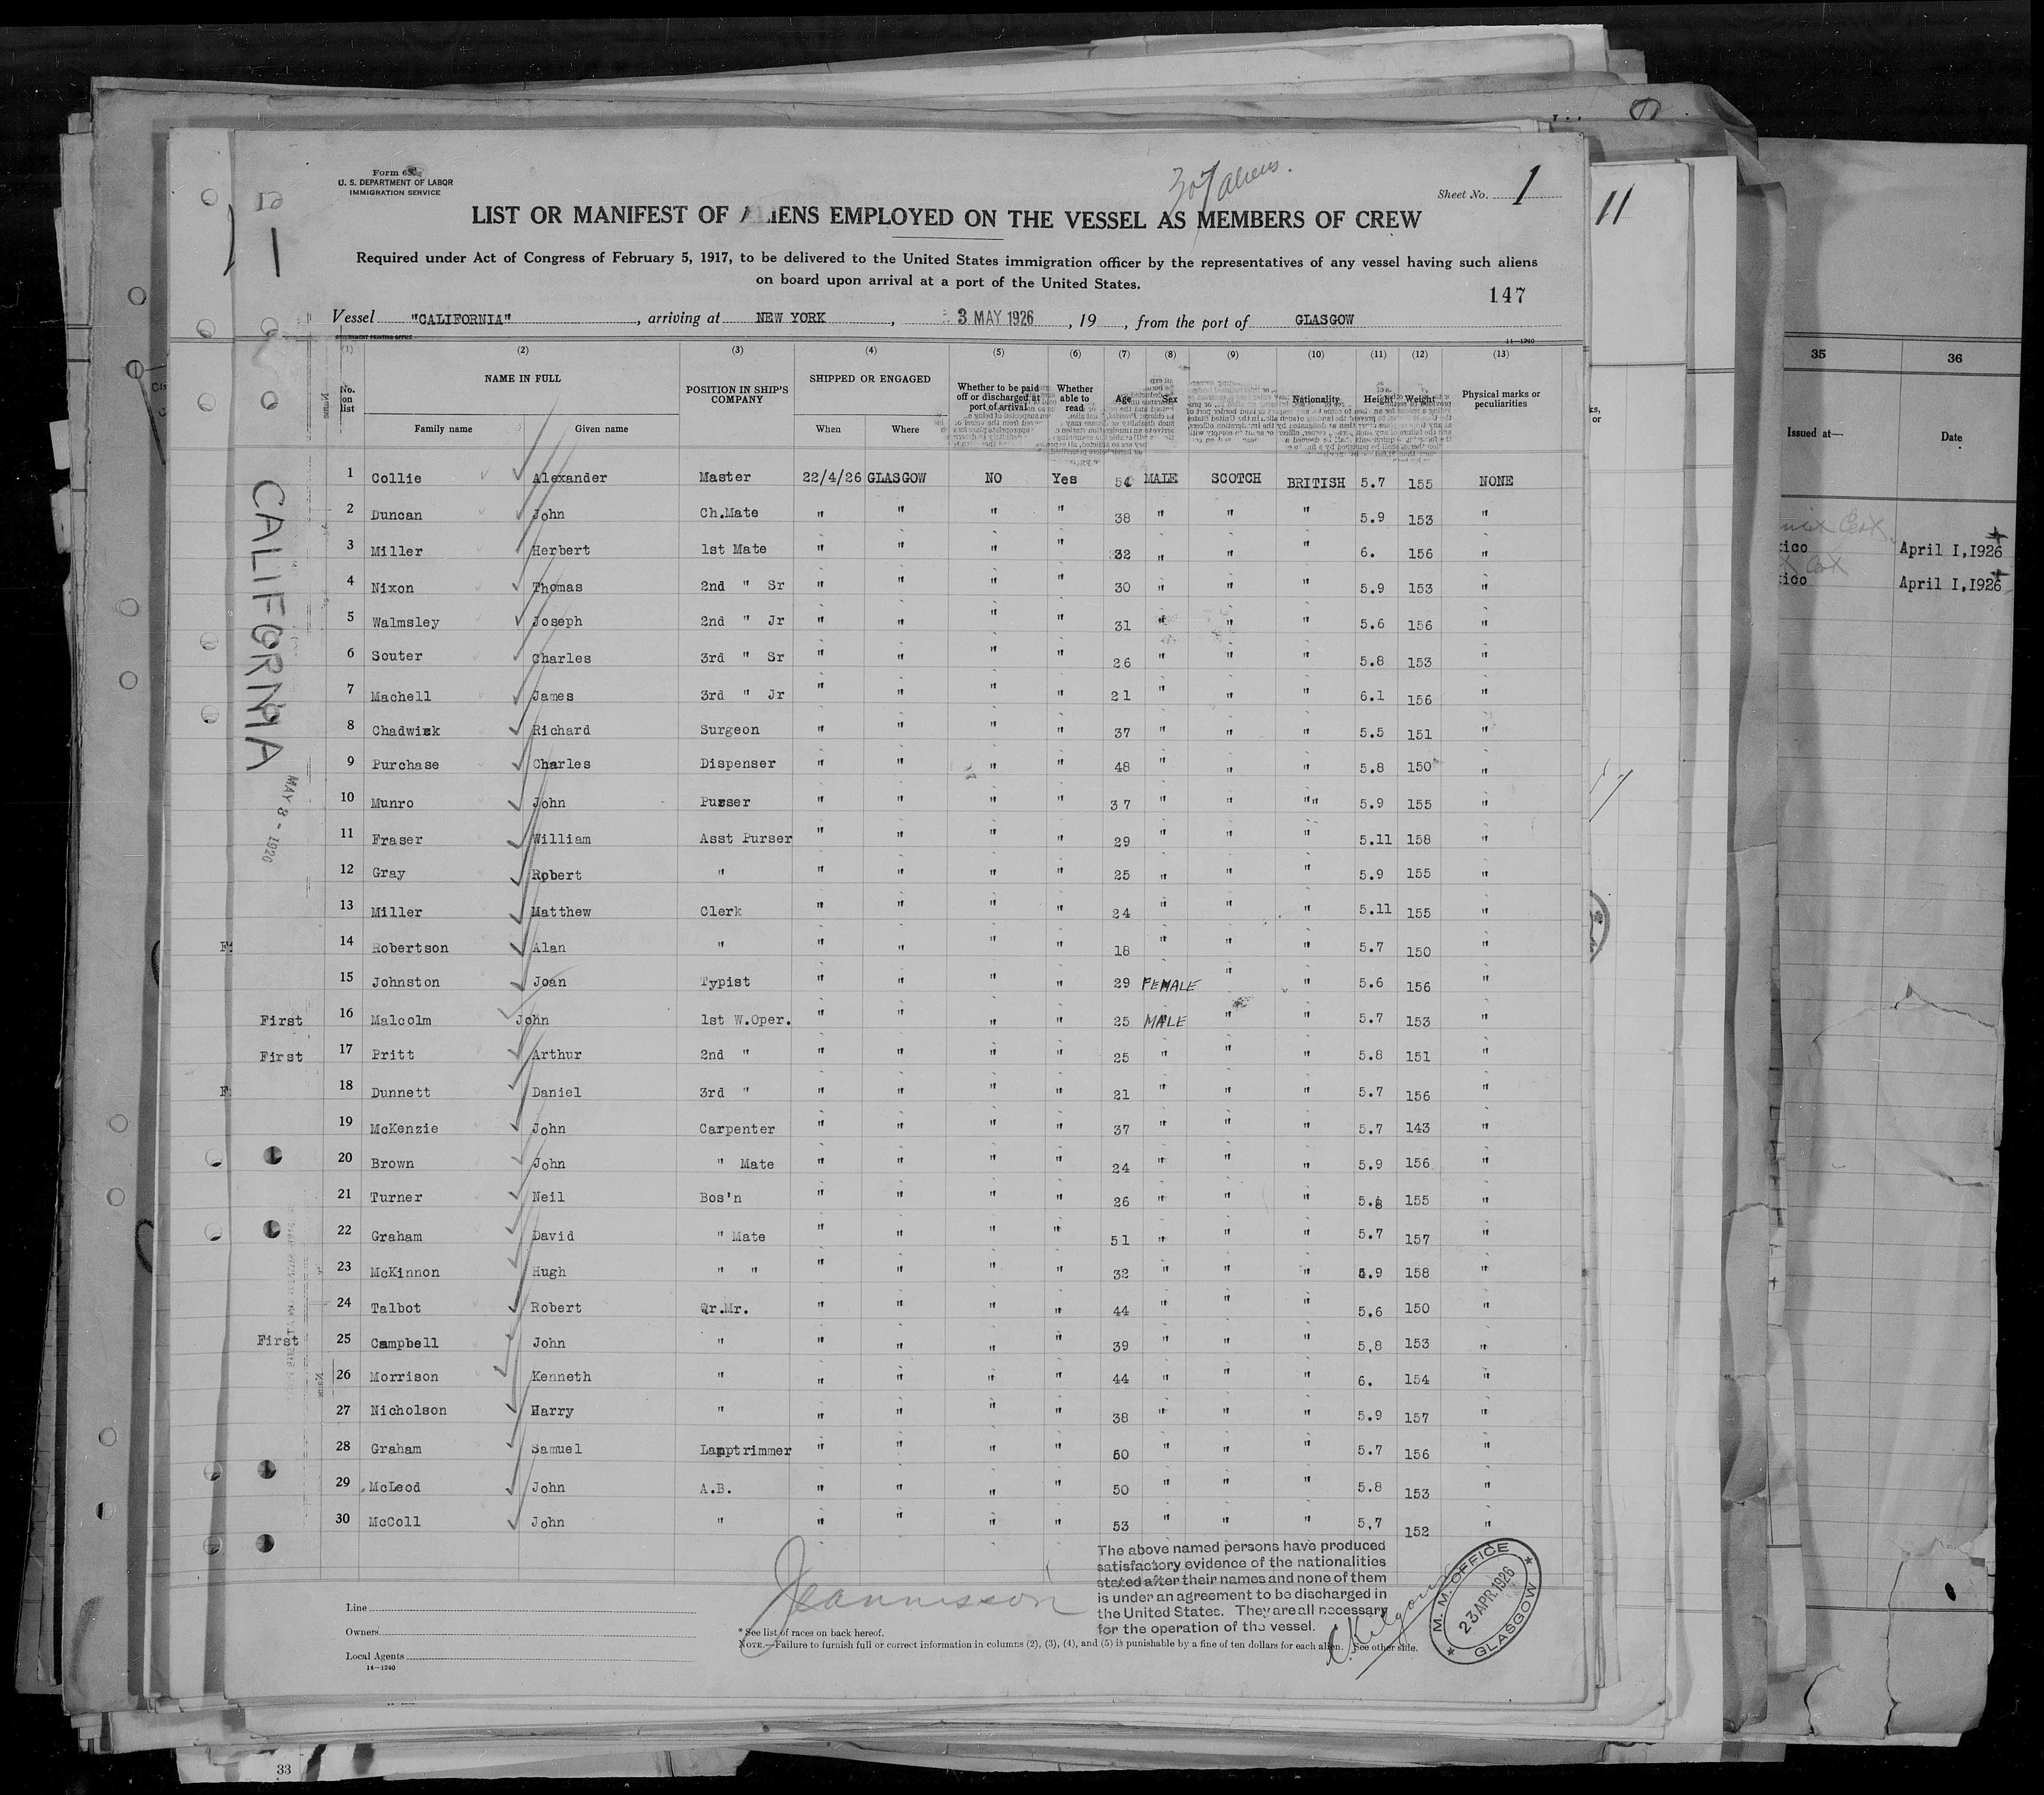 307 aliens.
Form 6
U. S. DEPARTMENT OF LABOR
IMMIGRATION SERVICE
Sheet No. 1
11
LIST OR MANIFEST OF ALIENS EMPLOYED ON THE VESSEL AS MEMBERS OF CREW
Required under Act of Congress of February 5, 1917, to be delivered to the United States immigration officer by the representatives of any vessel having such aliens
on board upon arrival at a port of the United States.
147
Vessel "CALIFORNIA", arriving at NEW YORK, 3 MAY 1926, 19, from the port of GLASGOW
14—1240
(1) (2) (3) (4) (5) (6) (7) (8) (9) (10) (11) (12) (13)
No. on list NAME IN FULL Family name Given name POSITION IN SHIP'S COMPANY SHIPPED OR ENGAGED When Where Whether to be paid off or discharged at port of arrival Whether able to read Age Sex Nationality Height Weight Physical marks or peculiarities
35 36
Issued at— Date
tico April I,1926
tico April I,1926
CALIFORNIA
MAY 3 - 1926
1 Collie Alexander Master 22/4/26 GLASGOW NO Yes 54 MALE SCOTCH BRITISH 5.7 155 NONE
2 Duncan John Ch.Mate " " " " 38 " " " 5.9 153 "
3 Miller Herbert 1st Mate " " " " 32 " " " 6. 156 "
4 Nixon Thomas 2nd " Sr " " " " 30 " " " 5.9 153 "
5 Walmsley Joseph 2nd " Jr " " " " 31 " " " 5.6 156 "
6 Souter Charles 3rd " Sr " " " " 26 " " " 5.8 153 "
7 Machell James 3rd " Jr " " " " 21 " " " 6.1 156 "
8 Chadwick Richard Surgeon " " " " 37 " " " 5.5 151 "
9 Purchase Charles Dispenser " " " " 48 " " " 5.8 150 "
10 Munro John Purser " " " " 37 " " "" 5.9 155 "
11 Fraser William Asst Purser " " " " 29 " " " 5.11 158 "
12 Gray Robert " " " " " 25 " " " 5.9 155 "
13 Miller Matthew Clerk " " " " 24 " " " 5.11 155 "
14 Robertson Alan " " " " " 18 " " " 5.7 150 "
15 Johnston Joan Typist " " " " 29 FEMALE " " 5.6 156 "
First 16 Malcolm John 1st W.Oper. " " " " 25 MALE " " 5.7 153 "
First 17 Pritt Arthur 2nd " " " " " 25 " " " 5.8 151 "
18 Dunnett Daniel 3rd " " " " " 21 " " " 5.7 156 "
19 McKenzie John Carpenter " " " " 37 " " " 5.7 143 "
20 Brown John " Mate " " " " 24 " " " 5.9 156 "
21 Turner Neil Bos'n " " " " 26 " " " 5.8 155 "
22 Graham David " Mate " " " " 51 " " " 5.7 157 "
23 McKinnon Hugh " " " " " " 32 " " " 5.9 158 "
24 Talbot Robert Qr.Mr. " " " " 44 " " " 5.6 150 "
First 25 Campbell John " " " " " 39 " " " 5.8 153 "
26 Morrison Kenneth " " " " " 44 " " " 6. 154 "
27 Nicholson Harry " " " " " 38 " " " 5.9 157 "
28 Graham Samuel Lamptrimmer " " " " 50 " " " 5.7 156 "
29 McLeod John A.B. " " " " 50 " " " 5.8 153 "
30 McColl John " " " " " 53 " " " 5,7 152 "
The above named persons have produced
satisfactory evidence of the nationalities
stated after their names and none of them
is under an agreement to be discharged in
the United States. They are all necessary
for the operation of the vessel.
M. M. OFFICE
23 APR 1926
GLASGOW
Line
Owners
Local Agents
14—1240
* See list of races on back hereof.
NOTE.—Failure to furnish full or correct information in columns (2), (3), (4), and (5) is punishable by a fine of ten dollars for each alien. See other side.
33